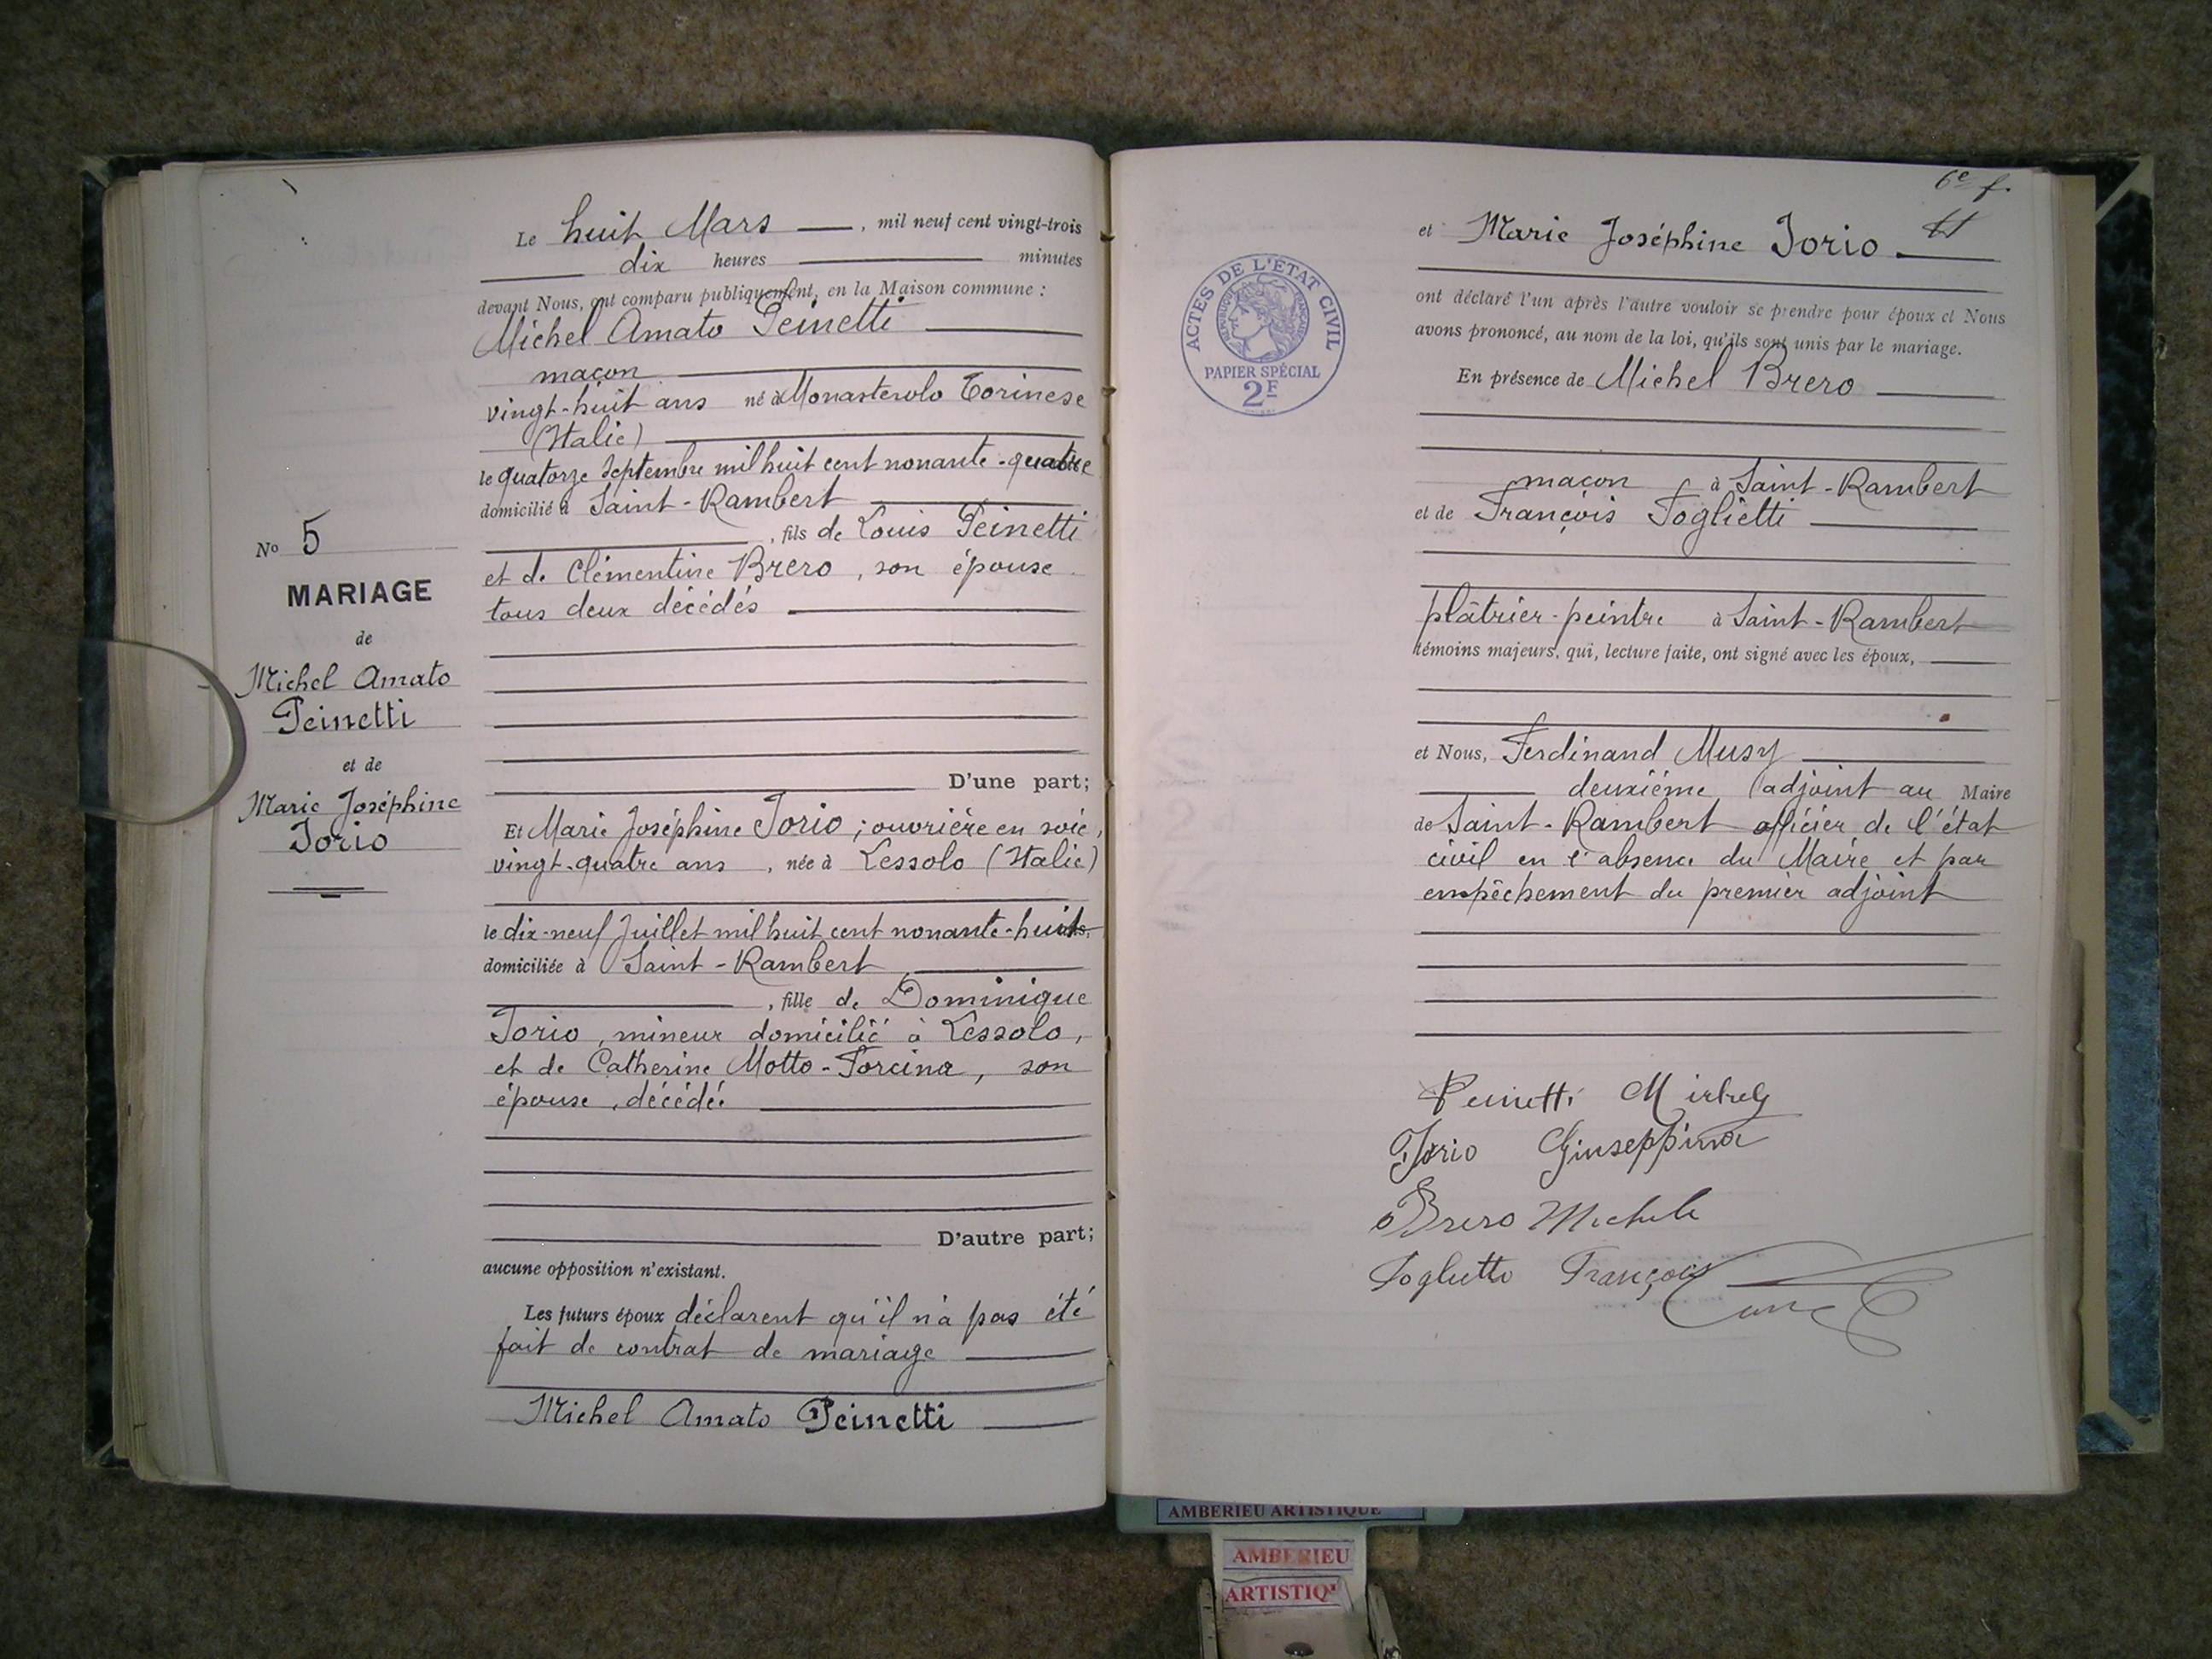 Le huit Mars —, mil neuf cent vingt-trois
dix heures — minutes
devant Nous, ont comparu publiquement, en la Maison commune :
Michel Amato Peinetti
maçon
vingt-huit ans né à Monasterolo Torinese
(Italie)
le quatorze Septembre mil huit cent nonante-quatre
domicilié à Saint-Rambert
, fils de Louis Peinetti
et de Clémentine Brero, son épouse
tous deux décédés
No 5
MARIAGE
de
Michel Amato
Peinetti
et de
Marie Joséphine
Jorio
D'une part;
Et Marie Joséphine Jorio ; ouvrière en soie,
vingt-quatre ans , née à Lessolo (Italie)
le dix-neuf Juillet mil huit cent nonante-huit
domiciliée à Saint-Rambert
, fille de Dominique
Jorio, mineur domicilié à Lessolo,
et de Catherine Motto-Forcina, son
épouse, décédée
D'autre part;
aucune opposition n'existant.
Les futurs époux déclarent qu'il n'a pas été
fait de contrat de mariage
Michel Amato Peinetti
6e f.
et Marie Joséphine Jorio
ont déclaré l'un après l'autre vouloir se prendre pour époux et Nous
avons prononcé, au nom de la loi, qu'ils sont unis par le mariage.
ACTES DE L'ÉTAT CIVIL
RÉPUBLIQUE FRANÇAISE
PAPIER SPÉCIAL
2F
En présence de Michel Brero
maçon à Saint-Rambert
et de François Foglietti
plâtrier-peintre à Saint-Rambert
témoins majeurs, qui, lecture faite, ont signé avec les époux,
et Nous, Ferdinand Musy
deuxième adjoint au Maire
de Saint-Rambert officier de l'état
civil en l'absence du Maire et par
empêchement du premier adjoint
Peinetti Michel
Jorio Giuseppina
Brero Michele
Foglietti François
AMBERIEU ARTISTIQUE
AMBERIEU
ARTISTIQ